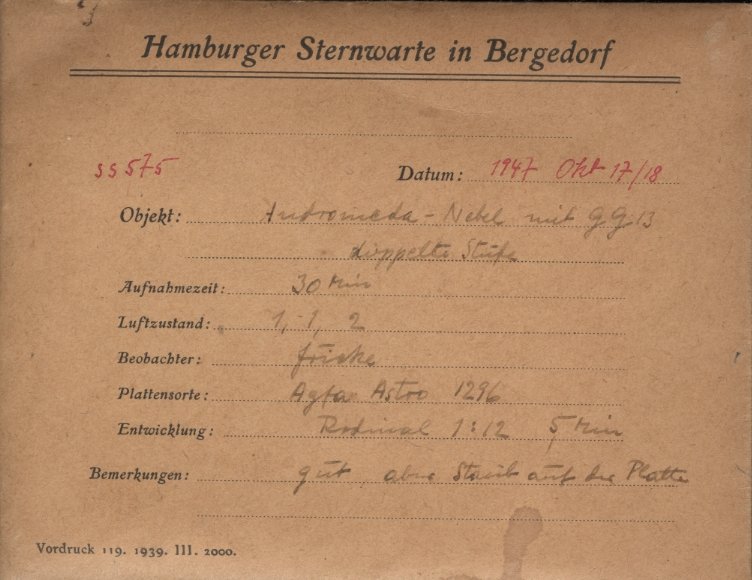 Hamburger Sternwarte in Bergedorf
SS 575 Datum: 1947 Okt 17/18
Objekt: Andromeda-Nebel mit GG 13
doppelte Stufe
Aufnahmezeit: 30 Min
Luftzustand: 1, 1, 2
Beobachter: Fricke
Plattensorte: Agfa Astro 1296
Entwicklung: Rodinal 1:12 5 Min
Bemerkungen: gut, aber Staub auf der Platte
Vordruck 119. 1939. III. 2000.